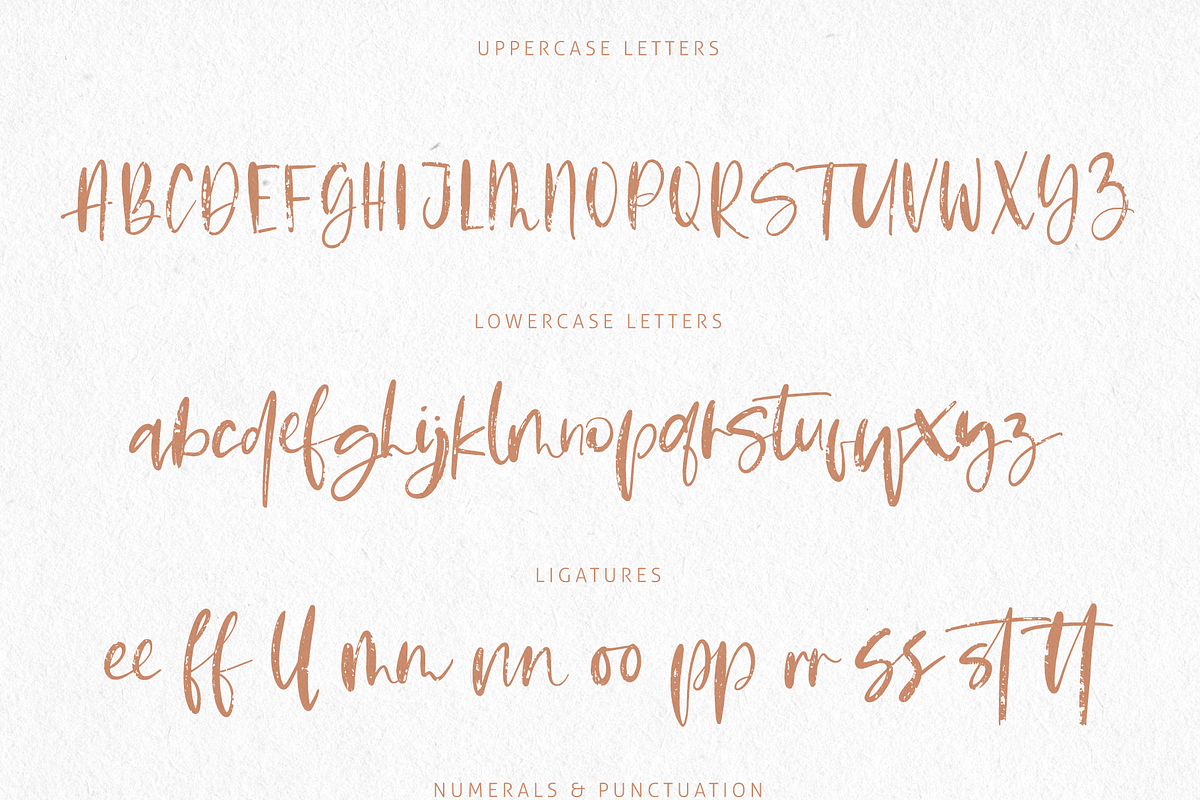 UPPERCASE LETTERS
ABCDEFGHIJLMNOPQRSTUVWXYZ
LOWERCASE LETTERS
abcdefghijklmnopqrstuvwxyz
LIGATURES
ee ff ll mm nn oo pp rr ss st tt
NUMERALS & PUNCTUATION